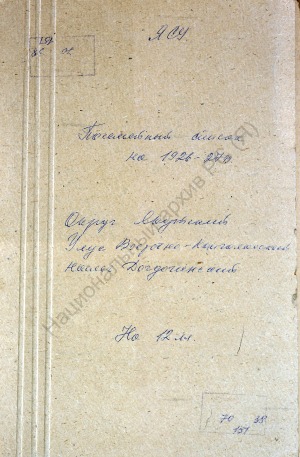 ЯСУ.
Поселенный список
на 1926-27г
Округ Якутский
Улус Восточно-Кангаласский
Наслег Догдогинский
На 12 лл.
70 38
151
Национальный архив РС (Я)